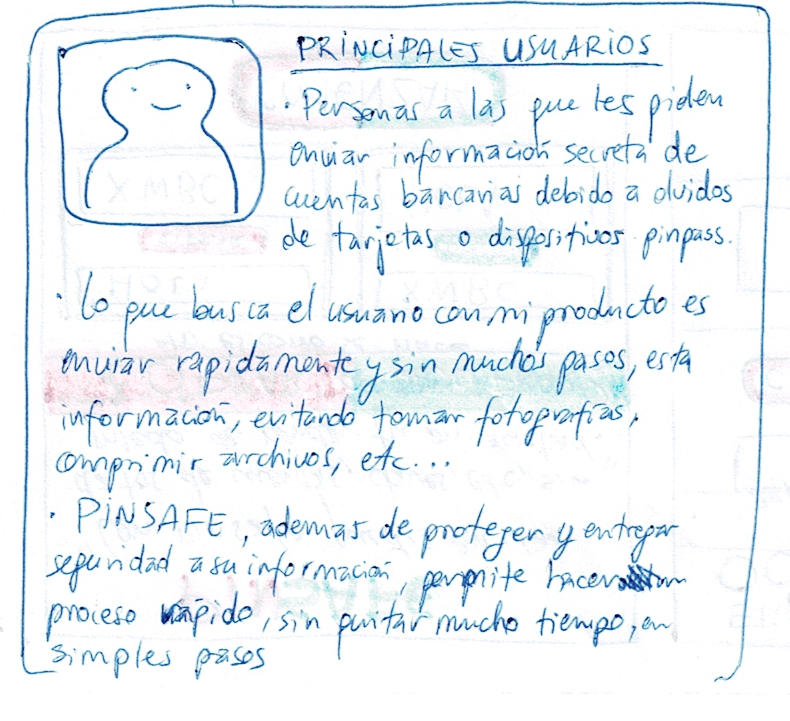 PRINCIPALES USUARIOS
· Personas a las que les piden
enviar información secreta de
cuentas bancarias debido a olvidos
de tarjetas o dispositivos pinpass.
· Lo que busca el usuario con mi producto es
enviar rapidamente y sin muchos pasos, esta
información, evitando tomar fotografías,
comprimir archivos, etc...
· PINSAFE, ademas de proteger y entregar
seguridad a su información, permite hacer un
proceso rápido, sin quitar mucho tiempo, en
simples pasos